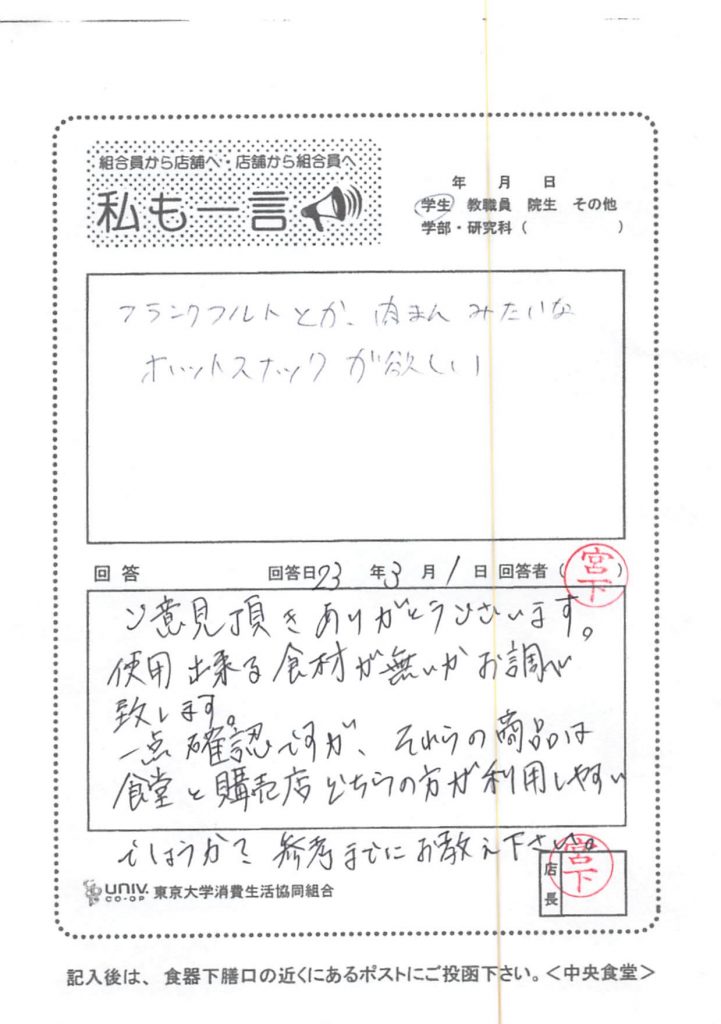 組合員から店舗へ・店舗から組合員へ
私も一言
年 月 日
学生 教職員 院生 その他
学部・研究科（ ）
フランクフルトとか、肉まんみたいな
ホットスナックが欲しい
回答 回答日23年3月1日 回答者（宮下）
ご意見頂きありがとうございます。
使用出来る食材が無いかお調べ
致します。
一点確認ですが、それらの商品は
食堂と購売店どちらの方が利用しやすい
でしょうか？参考までにお教え下さい。
店長 宮下
UNIV. CO-OP 東京大学消費生活協同組合
記入後は、食器下膳口の近くにあるポストにご投函下さい。＜中央食堂＞